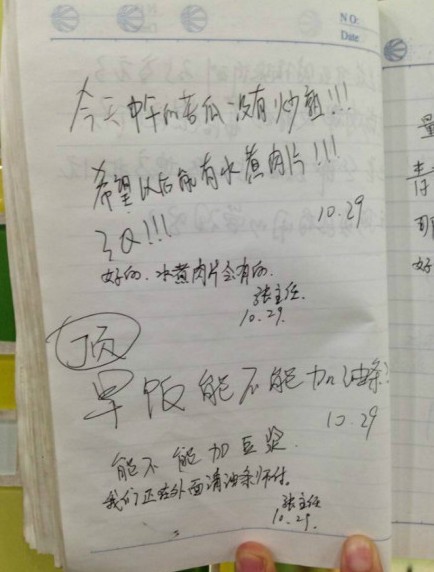 NO:
Date
今天中午的苦瓜没有炒熟!!!
希望以后能有水煮肉片!!!
10.29
好的.水煮肉片会有的.
张主任.
10.29.
顶
早饭能不能加油条?
10.29
能不能加豆浆.
我们正在外面请油条师付.
张主任
10.29.